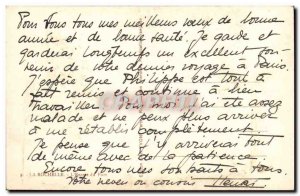 Pour vous tous mes meilleurs vœux de bonne
année et de bonne santé. Je garde et
garderai longtemps un excellent sou-
venir de votre dernier voyage à Paris.
J'espère que Philippe est tout à
fait remis et continue à bien
travailler. Pour moi j'ai été assez
malade et ne peux plus arriver
à me rétablir complètement.
Je pense que j'y arriverai tout
de même avec de la patience.
Encore tous mes souhaits à tous.
Votre neveu ou cousin
LA ROCHELLE